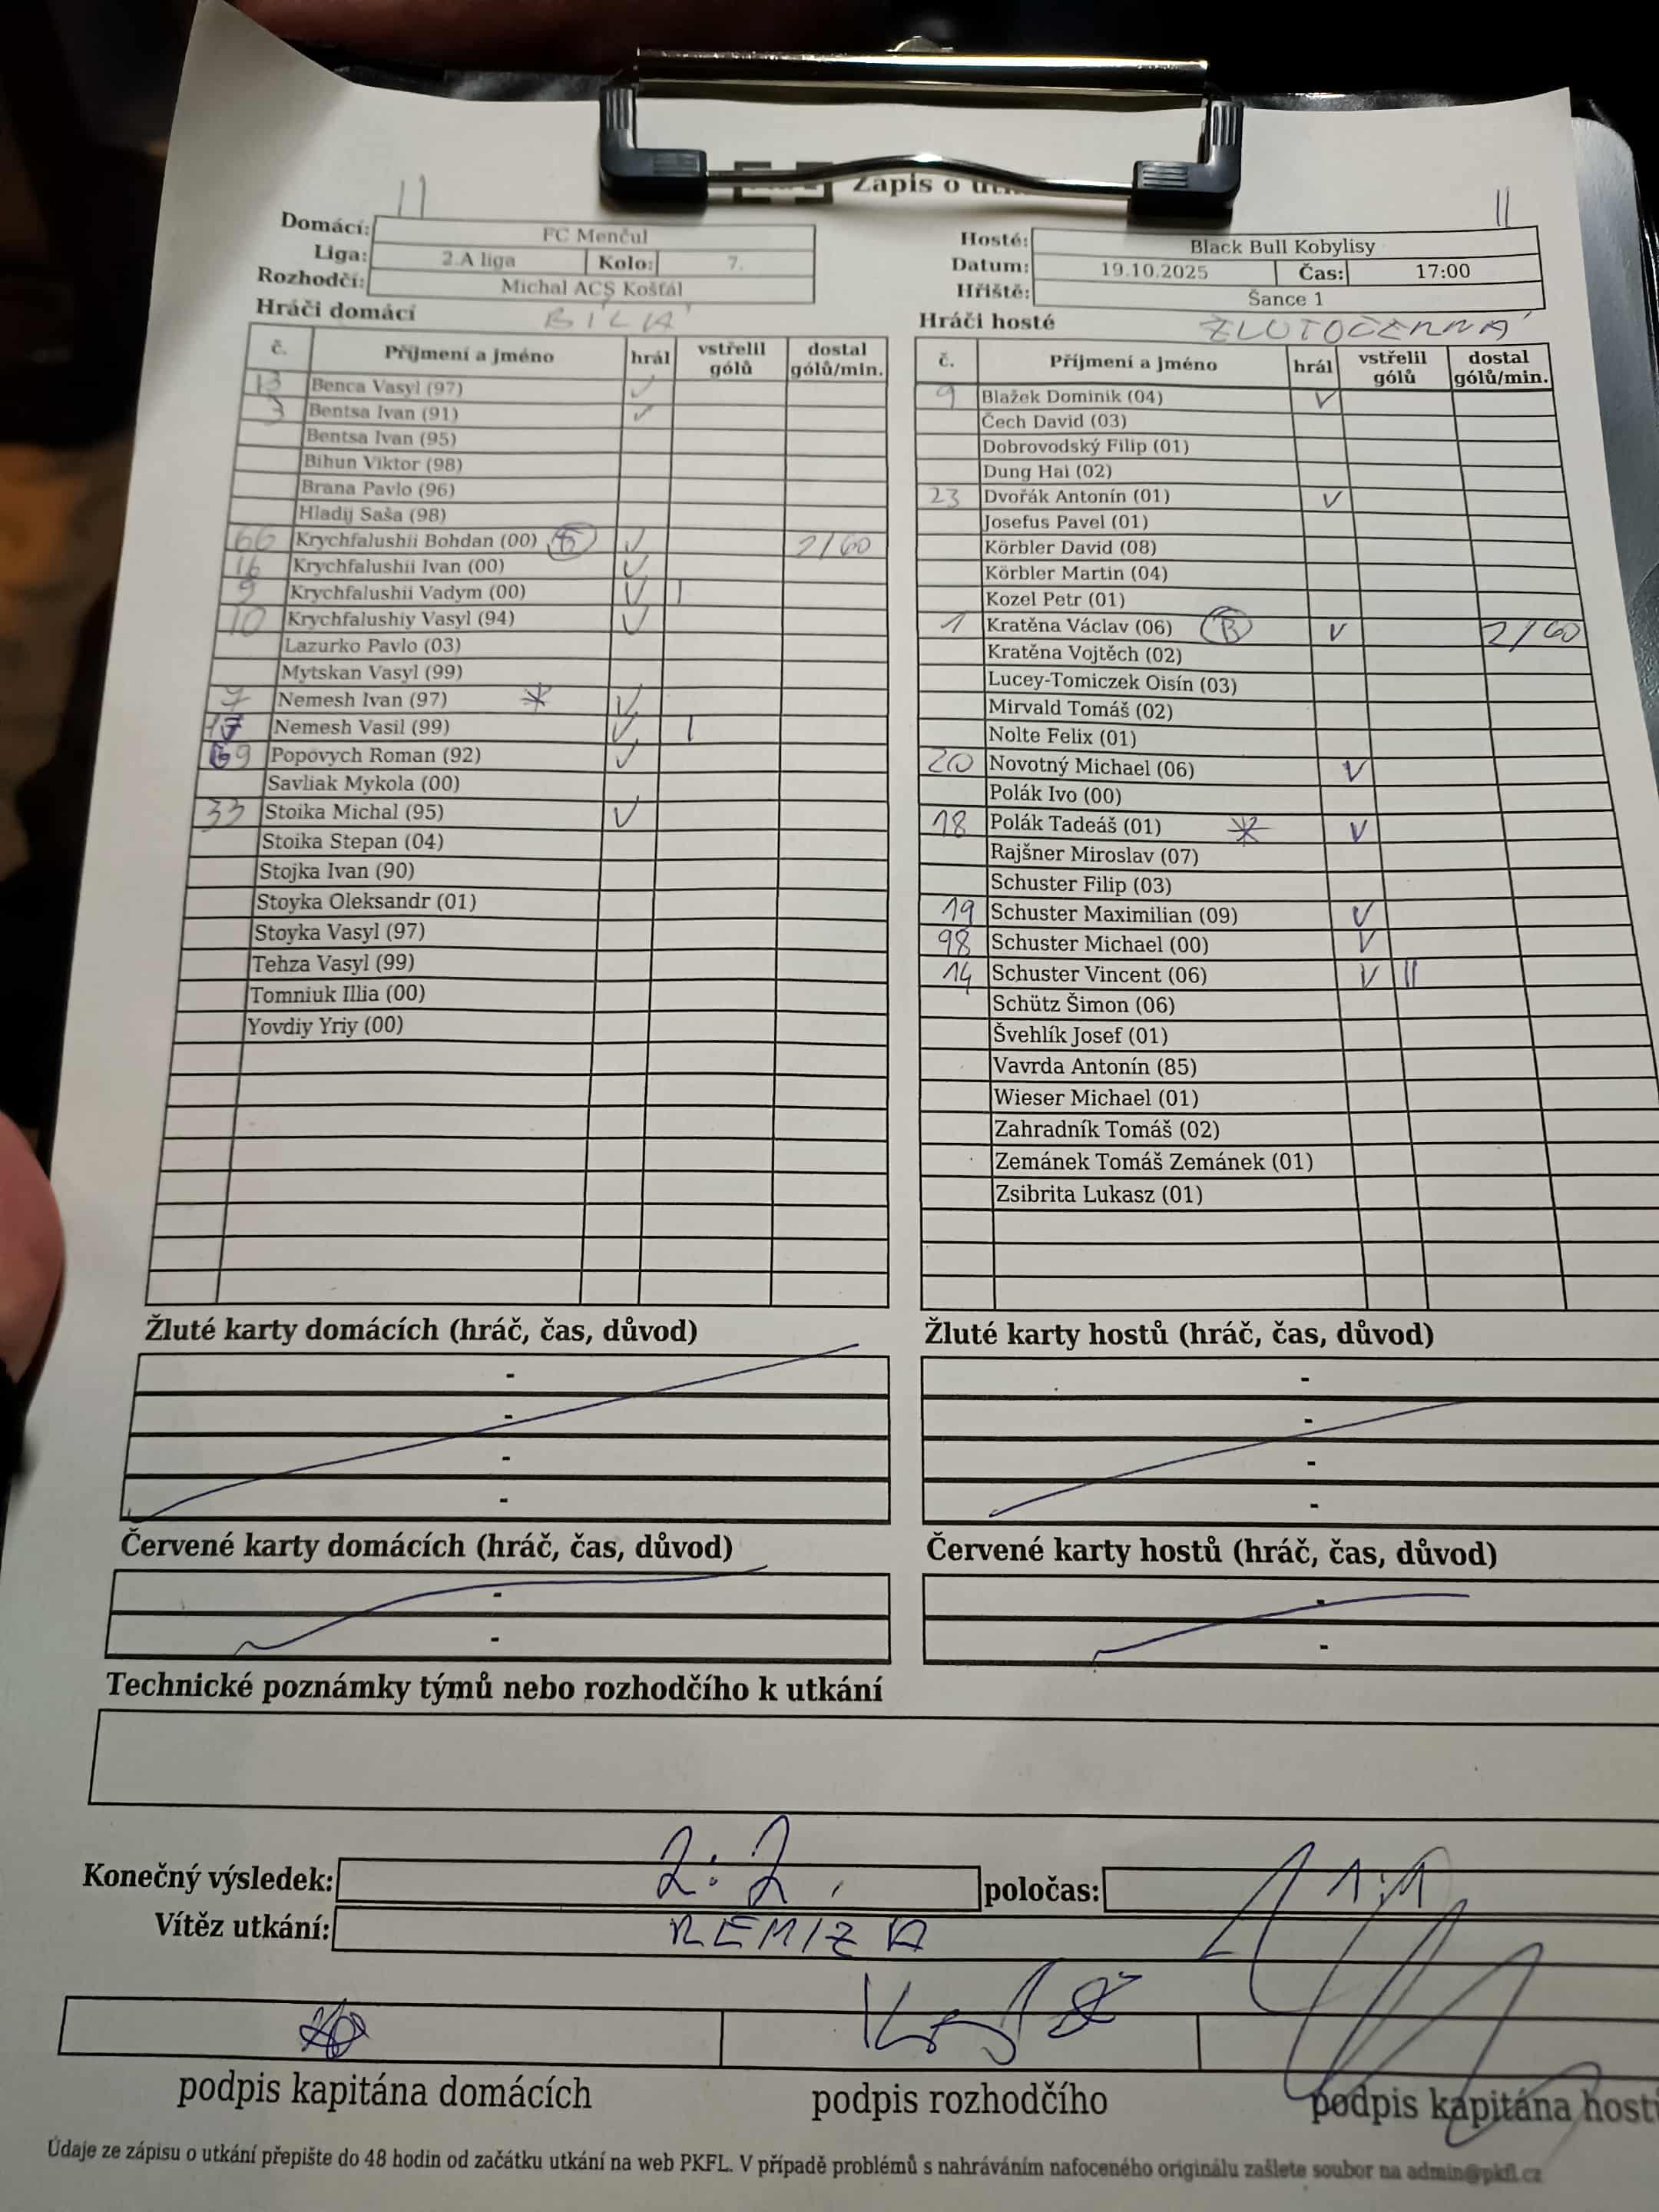 Zápis o
Domácí: FC Menčul
Liga: 2.A liga Kolo: 7.
Rozhodčí: Michal ACS Košťál
Hosté: Black Bull Kobylisy
Datum: 19.10.2025 Čas: 17:00
Hřiště: Šance 1
Hráči domácí BÍLÁ
č. Příjmení a jméno hrál vstřelil gólů dostal gólů/min.
13 Benca Vasyl (97) ✓
3 Bentsa Ivan (91) ✓
Bentsa Ivan (95)
Bihun Viktor (98)
Brana Pavlo (96)
Hladij Saša (98)
66 Krychfalushii Bohdan (00) B ✓ 2/60
16 Krychfalushii Ivan (00) ✓
9 Krychfalushii Vadym (00) ✓ |
10 Krychfalushiy Vasyl (94) ✓
Lazurko Pavlo (03)
Mytskan Vasyl (99)
7 Nemesh Ivan (97) * ✓
17 Nemesh Vasil (99) ✓ |
69 Popovych Roman (92) ✓
Savliak Mykola (00)
33 Stoika Michal (95) ✓
Stoika Stepan (04)
Stojka Ivan (90)
Stoyka Oleksandr (01)
Stoyka Vasyl (97)
Tehza Vasyl (99)
Tomniuk Illia (00)
Yovdiy Yriy (00)
Hráči hosté ŽLUTOČERNÁ
č. Příjmení a jméno hrál vstřelil gólů dostal gólů/min.
9 Blažek Dominik (04) ✓
Čech David (03)
Dobrovodský Filip (01)
Dung Hai (02)
23 Dvořák Antonín (01) ✓
Josefus Pavel (01)
Körbler David (08)
Körbler Martin (04)
Kozel Petr (01)
1 Kratěna Václav (06) B ✓ 2/60
Kratěna Vojtěch (02)
Lucey-Tomiczek Oisín (03)
Mirvald Tomáš (02)
Nolte Felix (01)
20 Novotný Michael (06) ✓
Polák Ivo (00)
18 Polák Tadeáš (01) * ✓
Rajšner Miroslav (07)
Schuster Filip (03)
19 Schuster Maximilian (09) ✓
98 Schuster Michael (00) ✓
14 Schuster Vincent (06) ✓ ||
Schütz Šimon (06)
Švehlík Josef (01)
Vavrda Antonín (85)
Wieser Michael (01)
Zahradník Tomáš (02)
Zemánek Tomáš Zemánek (01)
Zsibrita Lukasz (01)
Žluté karty domácích (hráč, čas, důvod)
-
-
-
-
Žluté karty hostů (hráč, čas, důvod)
-
-
-
-
Červené karty domácích (hráč, čas, důvod)
-
-
Červené karty hostů (hráč, čas, důvod)
-
-
Technické poznámky týmů nebo rozhodčího k utkání
Konečný výsledek: 2:2 poločas: 1:1
Vítěz utkání: REMIZA
podpis kapitána domácích podpis rozhodčího podpis kapitána host
Údaje ze zápisu o utkání přepište do 48 hodin od začátku utkání na web PKFL. V případě problémů s nahráváním nafoceného originálu zašlete soubor na admin@pkfl.cz